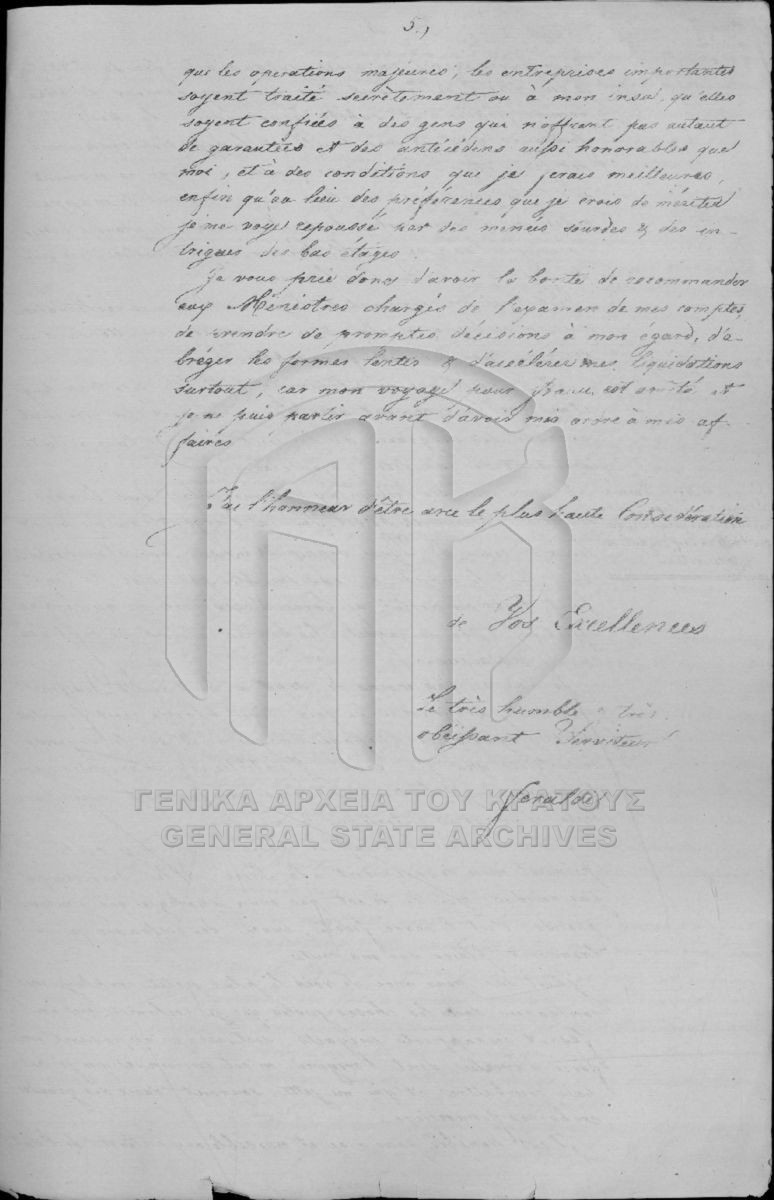 5.)
que les operations majeures, les entreprises importantes
soyent traité secrètement ou à mon insu, qu'elles
soyent confiées à des gens qui n'offrant pas autant
de garanties et des antécédens aussi honorables que
moi, et à des conditions que je ferais meilleures,
enfin qu'au lieu des préférences que je crois de mériter
je me voye repoussé par des menées sourdes & des in-
trigues des bas étages.
Je vous prie donc d'avoir la bonté de recommander
aux Ministres chargés de l'examen de mes comptes,
de prendre de promptes décisions à mon égard, d'a-
bréger les formes lentes & d'accélérer mes liquidations
surtout, car mon voyage pour est arrêté et
je ne puis partir avant d'avoir mis ordre à mes af-
faires
J'ai l'honneur d'être avec le plus haute Considération
de Vos Excellences
Le très humble & très
obéissant Serviteur
ΓΕΝΙΚΑ ΑΡΧΕΙΑ ΤΟΥ ΚΡΑΤΟΥΣ
GENERAL STATE ARCHIVES